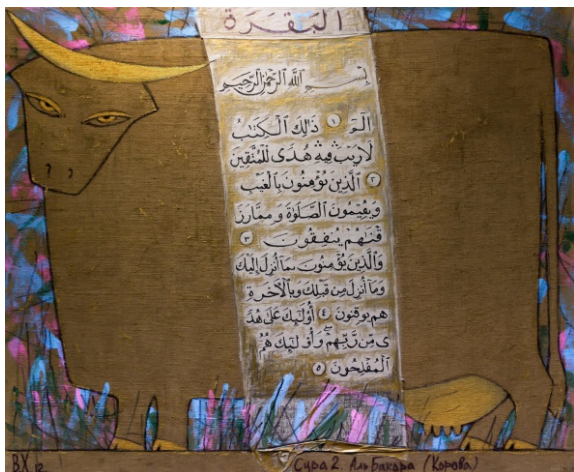 البَقَرَة
بِسْمِ اللهِ الرَّحْمٰنِ الرَّحِيمِ
الٓمٓ ۝١ ذَٰلِكَ الْكِتَٰبُ
لَا رَيْبَ ۛ فِيهِ ۛ هُدًى لِّلْمُتَّقِينَ
۝٢ الَّذِينَ يُؤْمِنُونَ بِالْغَيْبِ
وَيُقِيمُونَ الصَّلَوٰةَ وَمِمَّا رَزَ
قْنَٰهُمْ يُنفِقُونَ ۝٣
وَالَّذِينَ يُؤْمِنُونَ بِمَا أُنزِلَ إِلَيْكَ
وَمَا أُنزِلَ مِن قَبْلِكَ وَبِالْآخِرَةِ
هُمْ يُوقِنُونَ ۝٤ أُوْلَٰٓئِكَ عَلَىٰ هُدً
ى مِّن رَّبِّهِمْ ۖ وَأُوْلَٰٓئِكَ هُمُ
الْمُفْلِحُونَ ۝٥
ВХ 12
Сура 2 Аль Бакара (Корова)